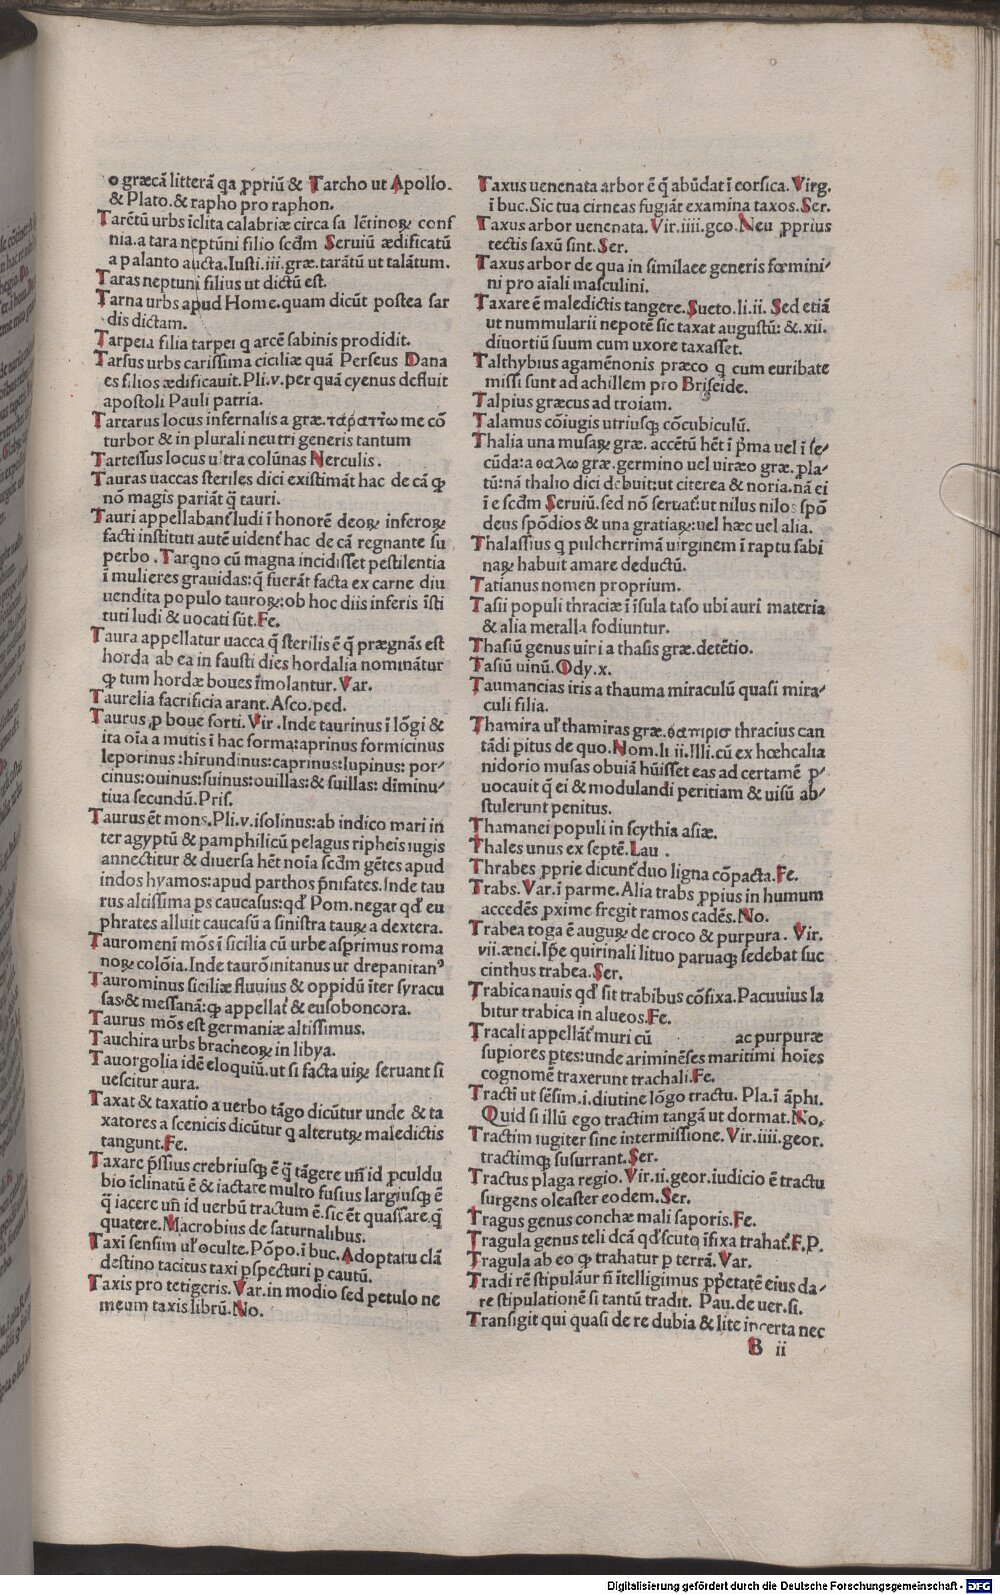 o græcā litterā qa ꝓpriū & Tarcho ut Apollo.
& Plato. & rapho pro raphon.
Tarētū urbs īclita calabriæ circa sa lētinoꝝ conf
nia. a tara neptūni filio scd̄m Seruiū ædificatū
a palanto aucta. Iusti. iii. græ. tarātū ut talātum.
Taras neptuni filius ut dictū est.
Tarna urbs apud Home. quam dicūt postea sar
dis dictam.
Tarpeia filia tarpei q arcē sabinis prodidit.
Tarsus urbs carissima ciciliæ quā Perseus Dana
es filios ædificauit. Pli. v. per quā cyenus defluit
apostoli Pauli patria.
Tartarus locus infernalis a græ. ταράττω me cō
turbor & in plurali neutri generis tantum
Tartessus locus ultra colūnas Nerculis.
Tauras uaccas steriles dici existimāt hac de cā ꝙ
nō magis pariāt q̄ tauri.
Tauri appellabant̄ ludi ī honorē deoꝝ inferoꝝ
facti instituti autē uident̄ hac de cā regnante su
perbo. Tarqno cū magna incidisset pestilentia
ī mulieres grauidas: q̄ fuerāt facta ex carne diu
uendita populo tauroꝝ: ob hoc diis inferis īsti
tuti ludi & uocati sūt. Fe.
Taura appellatur uacca q̄ sterilis ē q̄ prægnās est
horda ab ea in fausti dies hordalia nominātur
ꝙ tum hordæ boues īmolantur. Var.
Taurelia sacrificia arant. Asco. ped.
Taurus ꝓ boue forti. Vir. Inde taurinus ī lōgi &
ita oīa a mutis ī hac forma: aprinus formicinus
leporinus: hirundinus: caprinus: lupinus: por-
cinus: ouinus: suinus: ouillas: & suillas: dīminu-
tiua secundū. Pris.
Taurus ēt mons. Pli. v. isolinus: ab indico mari in
ter agyptū & pamphilicū pelagus ripheis iugis
annectitur & diuersa hēt noīa scd̄m gētes apud
indos hyamos: apud parthos p̄nifates. Inde tau
rus altissima ps caucasus: qd̄ Pom. negar qd̄ eu
phrates alluit caucasū a sinistra tauꝝ a dextera.
Tauromeni mōs ī sicilia cū urbe asprimus roma
noꝝ colōia. Inde taurōinitanus ut drepanitanꝰ
Taurominus siciliæ fluuius & oppidū iter syracu
sas & messanā: ꝙ appellat̄ & eusoboncora.
Taurus mōs est germaniæ altissimus.
Tauchira urbs bracheoꝝ in libya.
Tauorgolia idē eloquiū. ut si facta uiꝝ seruant si
uescitur aura.
Taxat & taxatio a uerbo tāgo dicūtur unde & ta
xatores a scenicis dicūtur q alterutꝝ maledictis
tangunt. Fe.
Taxare p̄ssius crebriusqꝫ ē q̄ tāgere un̄ id ꝓculdu
bio īclinatū ē & iactare multo fusius largiusqꝫ ē
q̄ iacere un̄ id uerbū tractum ē. sic ēt quassare. q̄
quatere. Macrobius de saturnalibus.
Taxī sensim ul̄ oculte. Pōpo. ī buc. Adoptatu clā
destino tacitus taxi ꝓspecturi p cautū.
Taxis pro tetigeris. Var. in modio sed petulo ne
meum taxis librū. No.
Taxus uenenata arbor ē q̄ abūdat ī corsica. Virg.
ī buc. Sic tua cirneas fugiāt examina taxos. Ser.
Taxus arbor uenenata. Vir. iiii. geo. Neu ꝓprius
tectis saxū sint. Ser.
Taxus arbor de qua in similaee generis fœmini-
ni pro aiali masculini.
Taxare ē maledictis tangere. Sueto. li. ii. Sed etiā
ut nummularii nepotē sic taxat augustū: &. xii.
diuortiū suum cum uxore taxasset.
Talthybius agamēnonis præco q cum euribate
missi sunt ad achillem pro Briseide.
Talpius græcus ad troiam.
Talamus cōiugis utriusqꝫ cōcubiculū.
Thalia una musaꝝ græ. accētū hēt ī p̄ma uel ī se-
cūda: a θαλω græ. germino uel uiræo græ. ꝓla-
tū: nā thalio dici debuit: ut citerea & noria. nā ei
ī e scd̄m Seruiū. sed nō seruat̄: ut nilus nilos spō
deus spōdios & una gratiaꝝ: uel hæc uel alia.
Thalassius q pulcherrimā uirginem ī raptu sabi
naꝝ habuit amare deductū.
Tatianus nomen proprium.
Tasii populi thraciæ ī īsula taso ubi auri materia
& alia metalla fodiuntur.
Thasiū genus uiri a thasis græ. detētio.
Tasiū uinū. Ody. x.
Taumancias iris a thauma miraculū quasi mira-
culi filia.
Thamira ul̄ thamiras græ. θαmιρισ thracius can
tādi pitus de quo. Nom. li ii. Illi. cū ex hœhcalia
nidorio musas obuiā hūisset eas ad certamē ꝓ-
uocauit q̄ ei & modulandi peritiam & uisū ab-
stulerunt penitus.
Thamanei populi in scythia asiæ.
Thales unus ex septē. Lau.
Thrabes ꝓprie dicunt̄ duo ligna cōpacta. Fe.
Trabs. Var. ī parme. Alia trabs ꝓpius in humum
accedēs ꝓxime fregit ramos cadēs. No.
Trabea toga ē auguꝝ de croco & purpura. Vir.
vii. ænei. Ip̄e quirinali lituo paruaqꝫ sedebat suc
cinthus trabea. Ser.
Trabica nauis qd̄ sit trabibus cōfixa. Pacuuius la
bitur trabica in alueos. Fe.
Tracali appellāt̄ muri cū ac purpuræ
supiores ptes: unde ariminēses maritimi hoīes
cognomē traxerunt trachali. Fe.
Tracti ut sēsim. i. diutine lōgo tractu. Pla. ī āphi.
Quid si illū ego tractim tangā ut dormat. No.
Tractim iugiter sine intermissione. Vir. iiii. geor.
tractimqꝫ susurrant. Ser.
Tractus plaga regio. Vir. ii. geor. iudicio ē tractu
surgens oleaster eodem. Ser.
Tragus genus conchæ mali saporis. Fe.
Tragula genus teli dcā qd̄ scuto īfixa trahat̄. F. P.
Tragula ab eo ꝙ trahatur p terrā. Var.
Tradi rē stipulāur n̄ ītelligimus ꝓp̄etatē eius da-
re stipulationē si tantū tradit. Pau. de uer. si.
Transigit qui quasi de re dubia & lite incerta nec
B ii
Digitalisierung gefördert durch die Deutsche Forschungsgemeinschaft - DFG